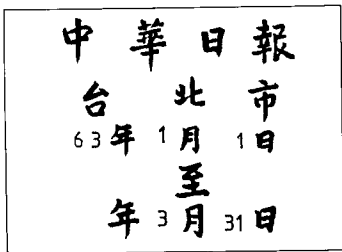 中華日報
台北市
63年1月1日
至
年3月31日